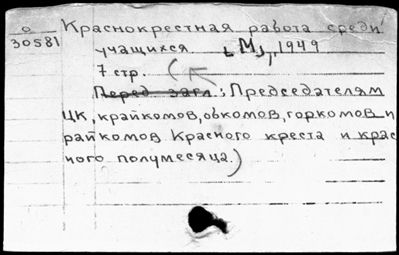 О
30581
Краснокрестная работа среди
учащихся [М], 1949
7 стр. (
Перед загл.: Председателям
ЦК, крайкомов, обкомов, горкомов и
райкомов Красного креста и крас
ного полумесяца.)